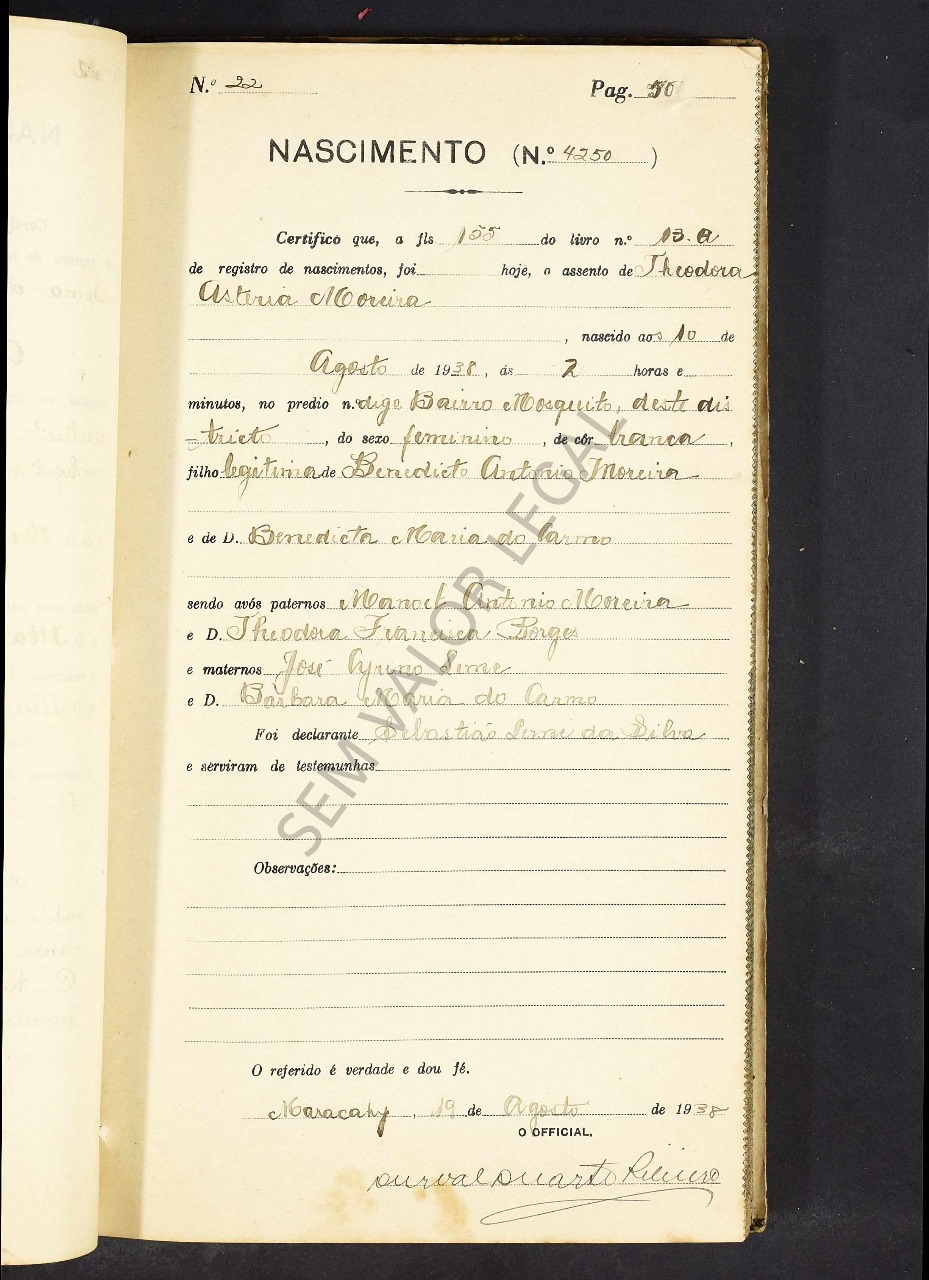 N.º 22 Pag. 50
NASCIMENTO (N.º 4250)
Certifico que, a fls 155 do livro n.º 13-A
de registro de nascimentos, foi hoje, o assento de Theodora
Asteria Moreira
, nascido aos 10 de
Agosto de 1938, ás 2 horas e
minutos, no predio n.º digo Bairro Mosquito, deste dis
tricto, do sexo feminino, de côr branca,
filho legitima de Benedicto Antonio Moreira
e de D. Benedicta Maria do Carmo
sendo avós paternos Manoel Antonio Moreira
e D. Theodora Francisca Borges
e maternos José Cyrino Leme
e D. Barbara Maria do Carmo
Foi declarante Sebastião Leme da Silva
e serviram de testemunhas
Observações:
O referido é verdade e dou fé.
Maracahy, 19 de Agosto de 1938
O OFFICIAL,
Durval Duarte Ribeiro
SEM VALOR LEGAL